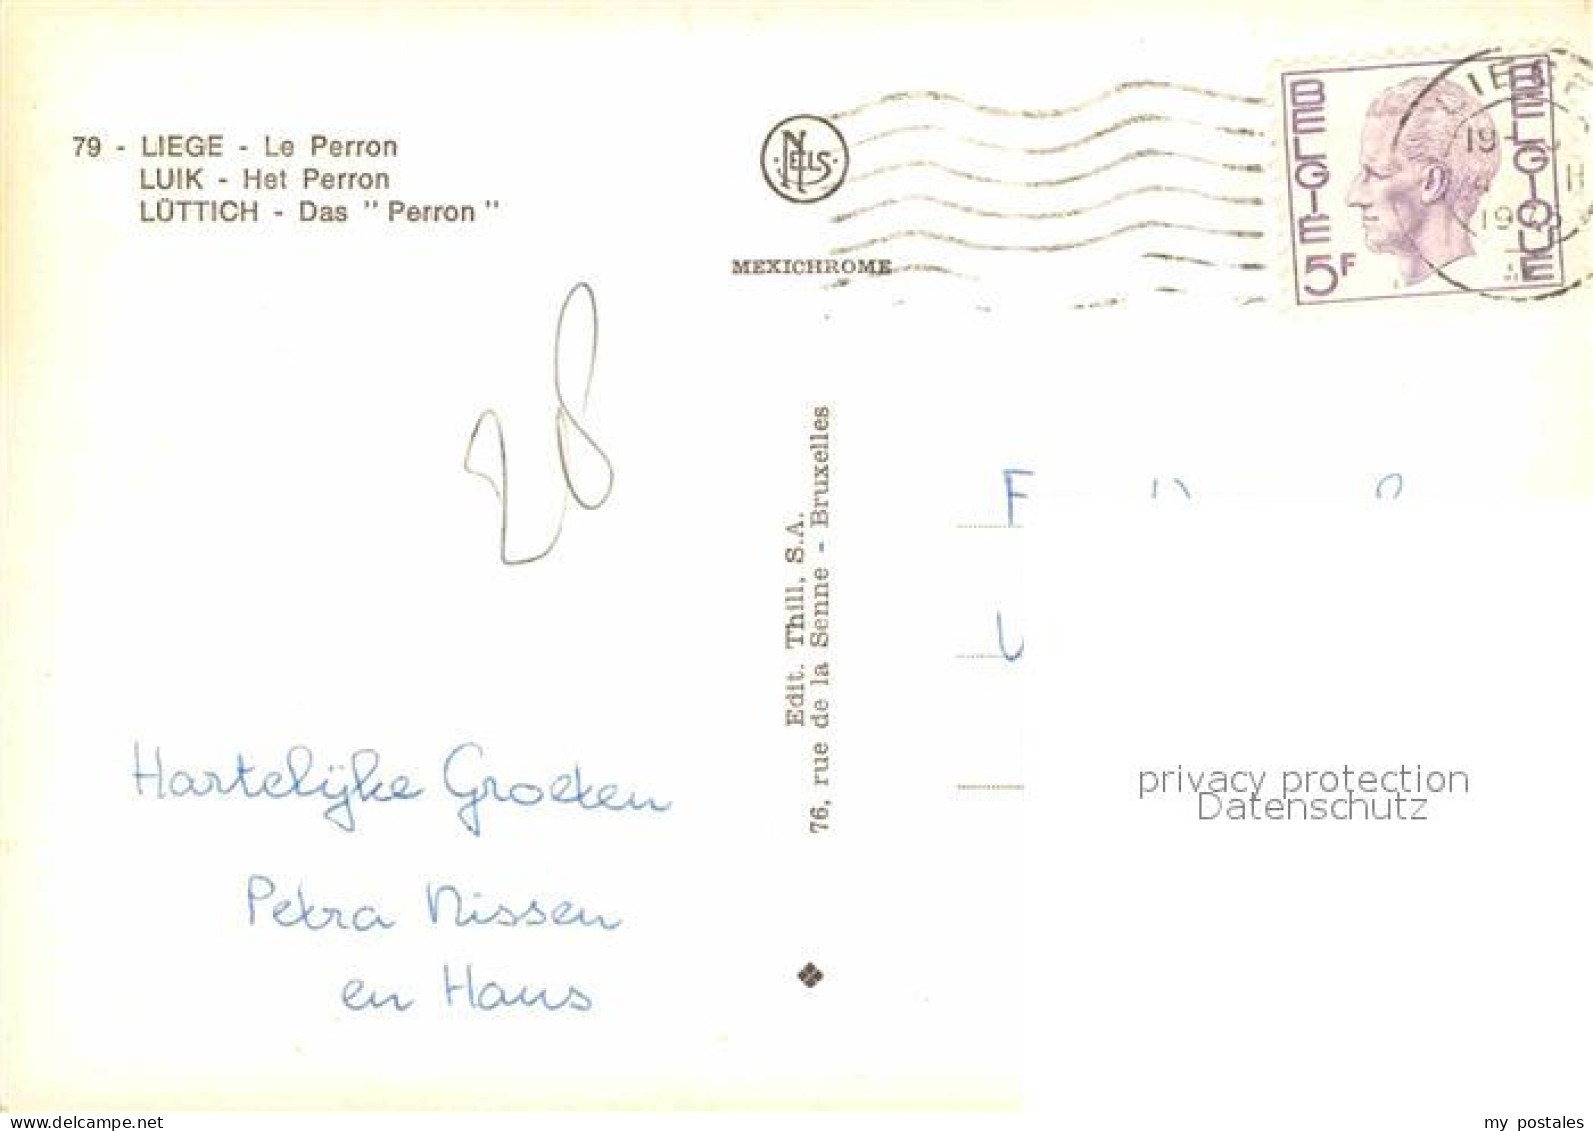 79 - LIEGE - Le Perron
LUIK - Het Perron
LÜTTICH - Das " Perron "
NELS
MEXICHROME
BELGIE
5F
BELGIQUE
Edit. Thill, S.A.
76, rue de la Senne - Bruxelles
Hartelijke Groeten
Petra Nissen
en Hans
privacy protection
Datenschutz
www.delcampe.net
my postales